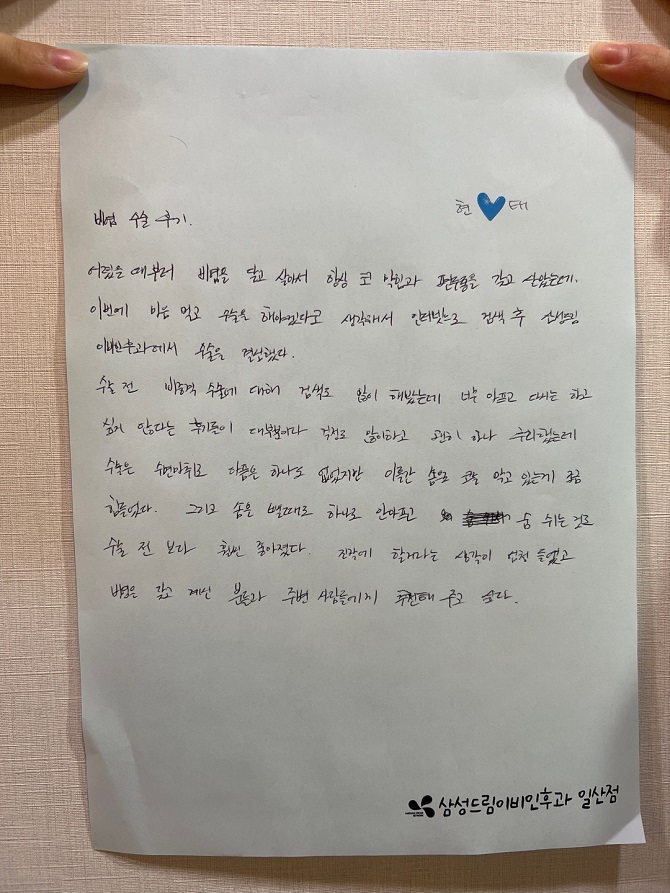 비염 수술 후기.
현 태
어렸을 때부터 비염을 달고 살아서 항상 코 막힘과 편두통을 갖고 살았는데.
이번에 마음 먹고 수술을 해야겠다고 생각해서 인터넷으로 검색 후 삼성드림
이비인후과에서 수술을 결심했다.
수술 전 수술에 대해 검색도 많이 해봤는데 너무 아프고 다시는 하고
싶지 않다는 후기들이 대부분이라 걱정도 많이하고 괜히 하나 후회했는데
수술은 수면마취로 아픔은 하나도 없었지만 이틀간 솜으로 코를 막고 있는게 조금
힘들었다. 그리고 솜을 뺄때도 하나도 안아프고 숨 쉬는 것도
수술 전 보다 훨씬 좋아졌다. 진작에 할거라는 생각이 엄청 들었고
비염을 갖고 계신 분들과 주변 사람들에게 추천해 주고 싶다.
삼성드림이비인후과 일산점